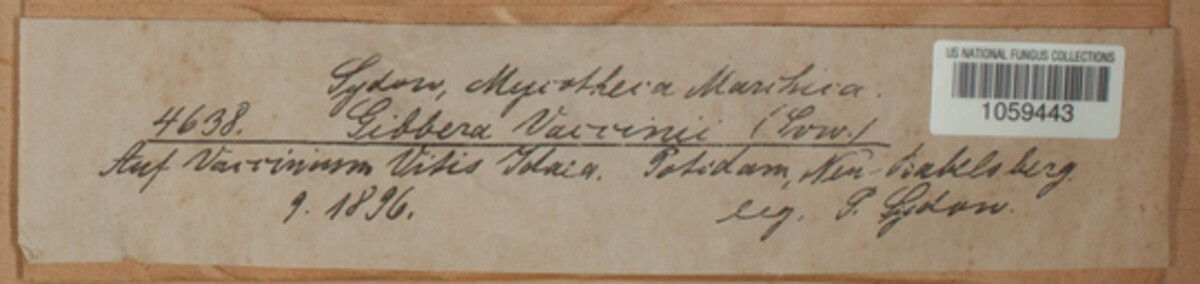 Sydow, Mycotheca Marchica.
4638. Gibbera Vaccinii (Sow.)
Auf Vaccinium Vitis Idaea. Potsdam, Neu-Babelsberg.
9. 1896. leg. P. Sydow.
US NATIONAL FUNGUS COLLECTIONS
1059443